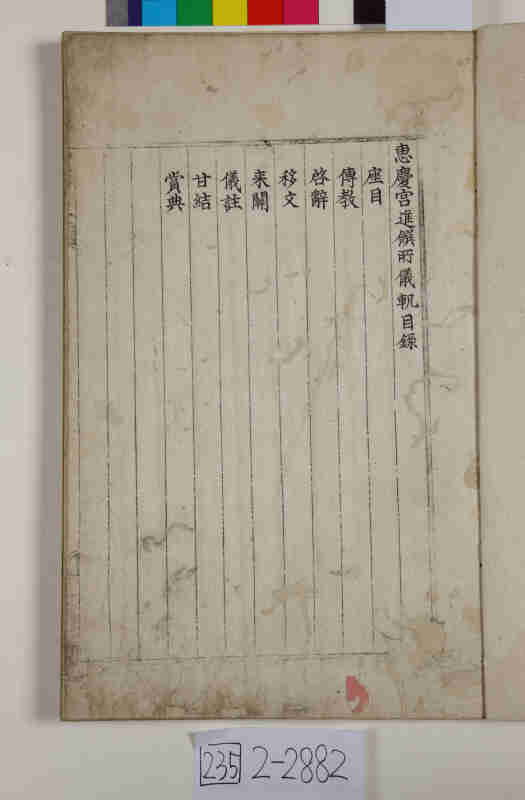 惠慶宮進饌所儀軌目錄
座目
傳教
啓辭
移文
來關
儀註
甘結
賞典
235 2-2882